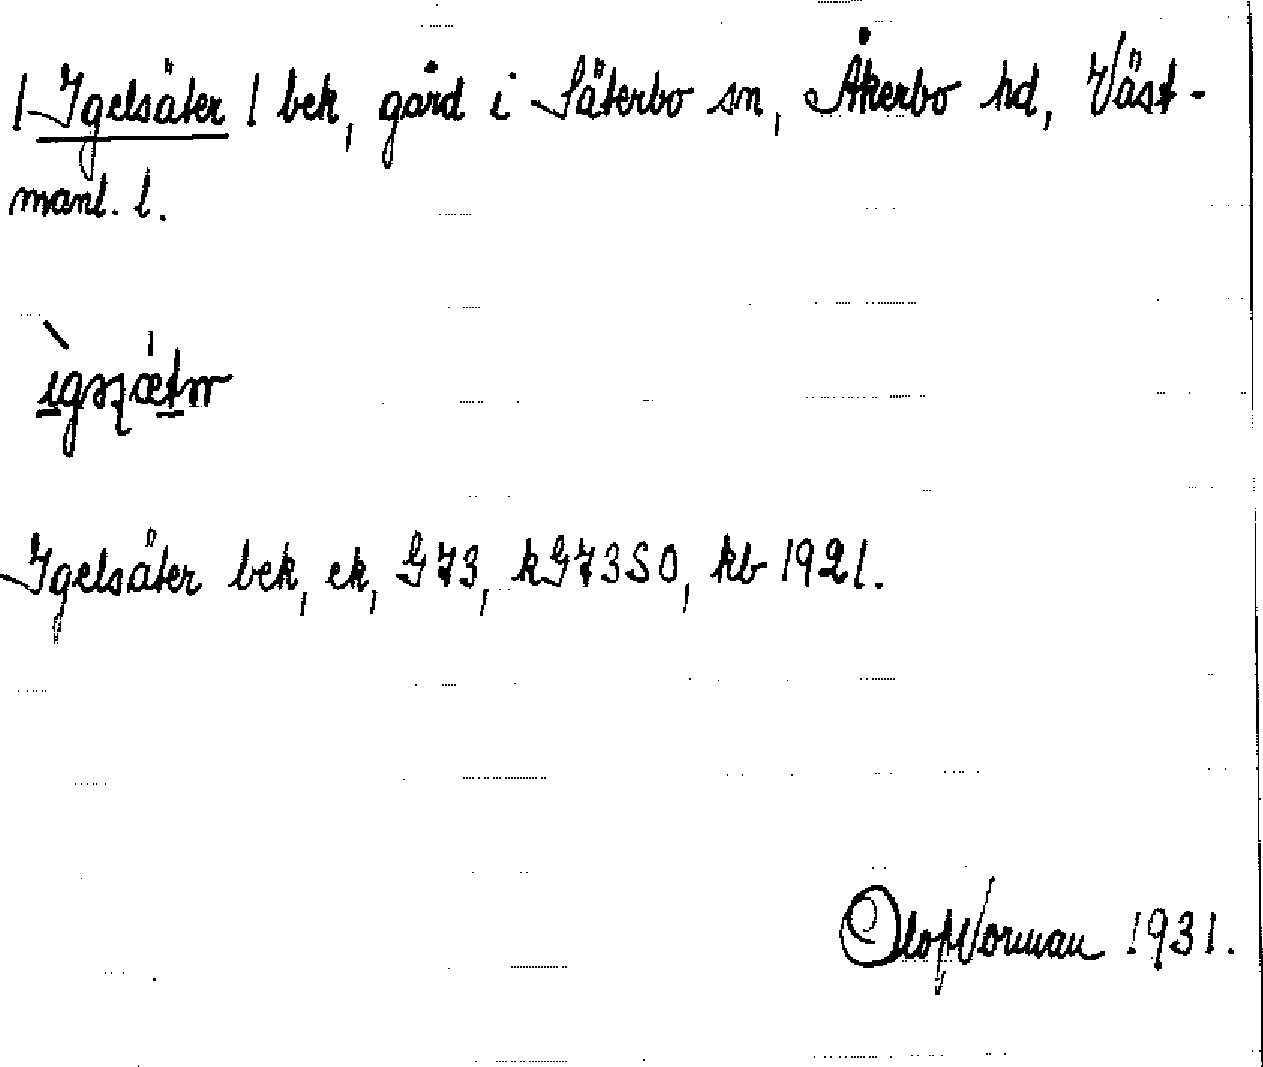 | Igelsäter | bek, gård i Säterbo sn, Åkerbo hd, Väst-
manl. l.
Igelsäter bek, ek, G73, kG73SO, kb 1921.
Olof Norman 1931.